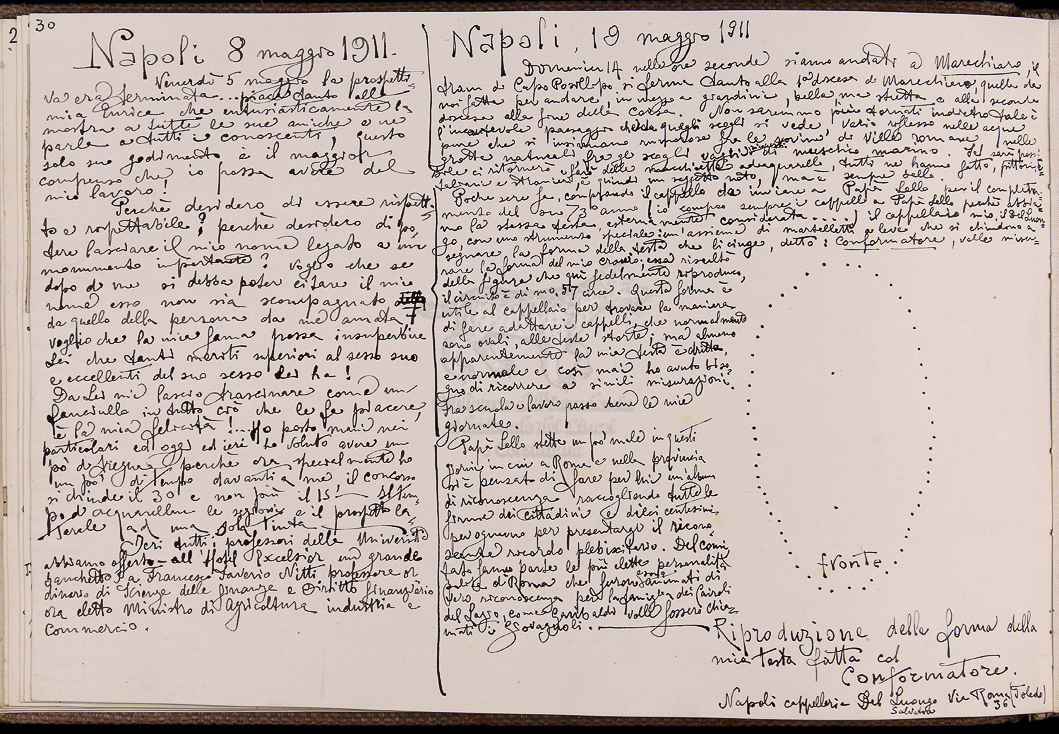 30
2
Napoli 8 maggio 1911.
Venerdì 5 maggio la prospetti-
va era terminata... piace tanto alla
mia Enrica che entusiasticamente la
mostra a tutte le sue amiche e ne
parla a tutti i conoscenti, questo
solo suo godimento è il maggior
compenso che io possa avere del
mio lavoro!
Perchè desidero di essere rispet-
to e rispettabile? perchè desidero di po-
tere lasciare il mio nome legato a un
monumento importante? Voglio che se
dopo di me si debba poter citare il mio
nome esso non sia scompagnato
da quello della persona da me amata,
voglio che la mia fama possa insuperbire
Lei che tanti meriti superiori al sesso suo
e eccellenti del suo sesso Lei ha!
Da Lei mi lascio trascinare come un
fanciullo in tutto ciò che le fa piacere,
è la mia felicità! Ho posto mani nei
particolari ed oggi ed ieri ho voluto avere un
pò di tregua perchè ora specialmente ho
un pò di tempo davanti a me, il concorso
si chiude il 30 e non più il 15!
po d'acquarellare le sezioni e il prospetto la-
terale ad una sola tinta
Ieri tutti i professori della Università
abbiamo offerto all'Hotel Excelsior un grande
banchetto a Francesco Saverio Nitti professore or
dinario di Scienze delle finanze e Diritto finanziario
ora eletto Ministro di Agricoltura industria e
Commercio.
Napoli, 19 maggio 1911
Domenica 14 nelle ore seconde siamo andati a Marechiaro, il
tram di Capo Posillipo si ferma tanto alla 1a discesa di Marechiaro, quella da
noi fatta per andare, in mezzo a giardini, bella ma stretta e alla seconda
discesa alla fine della Corsa. Non saremmo più tornati indietro tale è
l'incantevole paesaggio che da quegli scogli si vede, vario riflesso nelle acque
pure che si insinuano rumorose fra le rovine di ville romane, nelle
grotte naturali fra gli scogli vestiti di muschio marino. Se sarà possi-
bile ci ritornerò a fare delle macchiette ad acquarello, tutti ne hanno fatto, pittori i-
taliani e stranieri, è quindi un soggetto noto, ma è sempre bello.
Poche sere fa, comprando il cappello da inviare a Papà Lello, per il completa-
mento del suo 73 anno (io compro sempre i cappelli a Papà Lello perchè abbia-
mo la stessa testa, esternamente considerata.....) il cappellaio mio, il Del Luon-
go, con uno strumento speciale, un'assieme di martelletti a leva che si chiudono a
segnare la forma della testa che li cinge, detto: Conformatore, volle misu-
rare la forma del mio cranio: essa risultò
della figura che quì fedelmente riproduco,
il circuito è di m.0,57 circa. Questa forma è
utile al cappellaio per trovare la maniera
di fare adattare i cappelli, che normalmente
sono ovali, alle teste storte; ma almeno
apparentemente la mia testa è dritta
e normale e così mai ho avuto biso-
gno di ricorrere a simili misurazioni.
Fra scuola e lavoro passo bene le mie
giornate.
Papà Lello stette un pò male in questi
giorni in cui a Roma e nella provincia
si è pensato di fare per lui un'album
di riconoscenza raccogliendo tutte le
firme dei cittadini e dieci centesimi
per ognuno per presentargli il ricono-
scente ricordo plebiscitario. Del comi-
tato fanno parte le più elette personalità
di Roma che furono essa animati di
vera riconoscenza per la famiglia dei Cairoli
del Lazio, come Garibaldi volle fossero chia-
mati i Govagnoli.
fronte
Riproduzione della forma della
mia testa fatta col
Conformatore.
Napoli cappelleria Del Luongo Via Roma (Toledo)
Salvatore 36